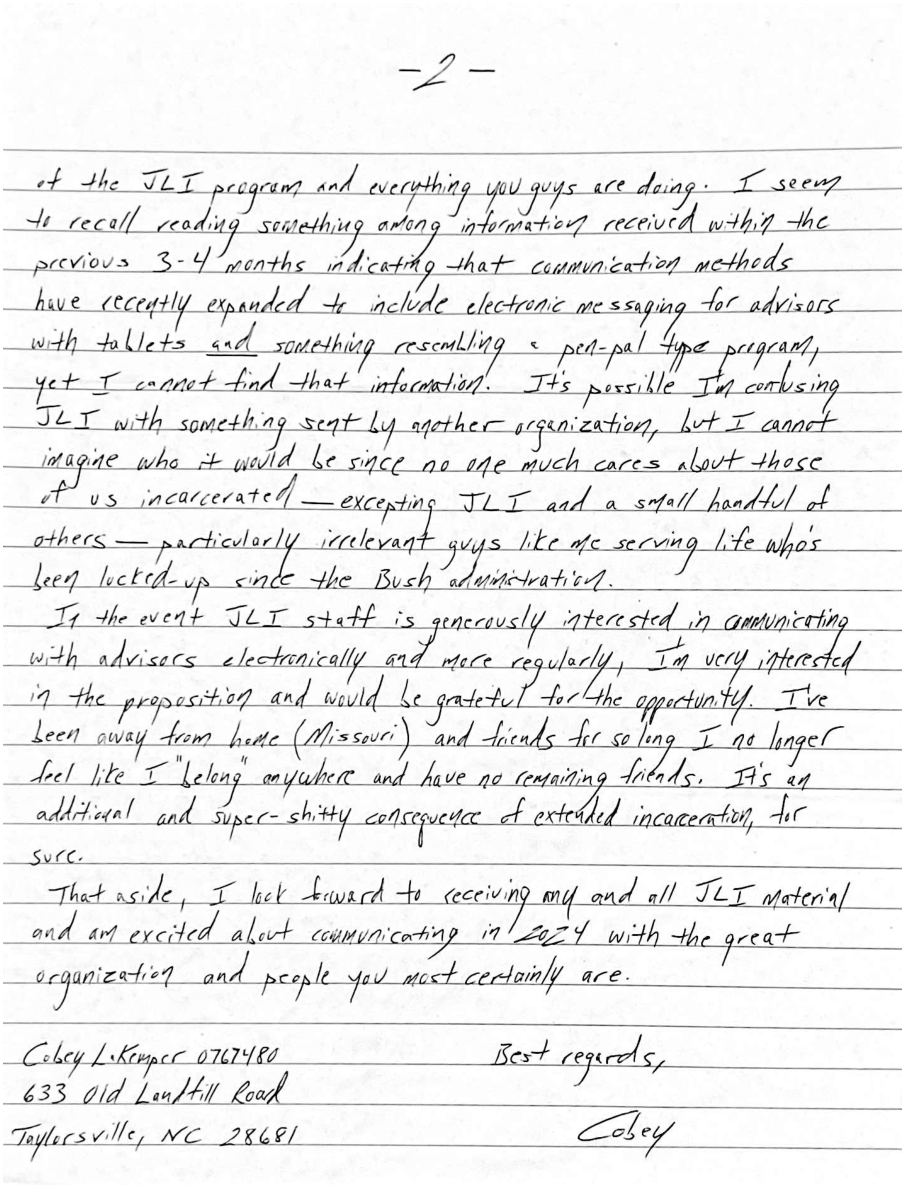 -2-
of the JLI program and everything you guys are doing. I seem
to recall reading something among information received within the
previous 3-4 months indicating that communication methods
have recently expanded to include electronic messaging for advisors
with tablets and something resembling a pen-pal type program,
yet I cannot find that information. It's possible I'm confusing
JLI with something sent by another organization, but I cannot
imagine who it would be since no one much cares about those
of us incarcerated — excepting JLI and a small handful of
others — particularly irrelevant guys like me serving life who's
been locked-up since the Bush administration.
If the event JLI staff is generously interested in communicating
with advisors electronically and more regularly, I'm very interested
in the proposition and would be grateful for the opportunity. I've
been away from home (Missouri) and friends for so long I no longer
feel like I "belong" anywhere and have no remaining friends. It's an
additional and super-shitty consequence of extended incarceration, for
sure.
That aside, I look forward to receiving any and all JLI material
and am excited about communicating in 2024 with the great
organization and people you most certainly are.
Cobey LaKemper 0767480
Best regards,
633 Old Landfill Road
Taylorsville, NC 28681
Cobey